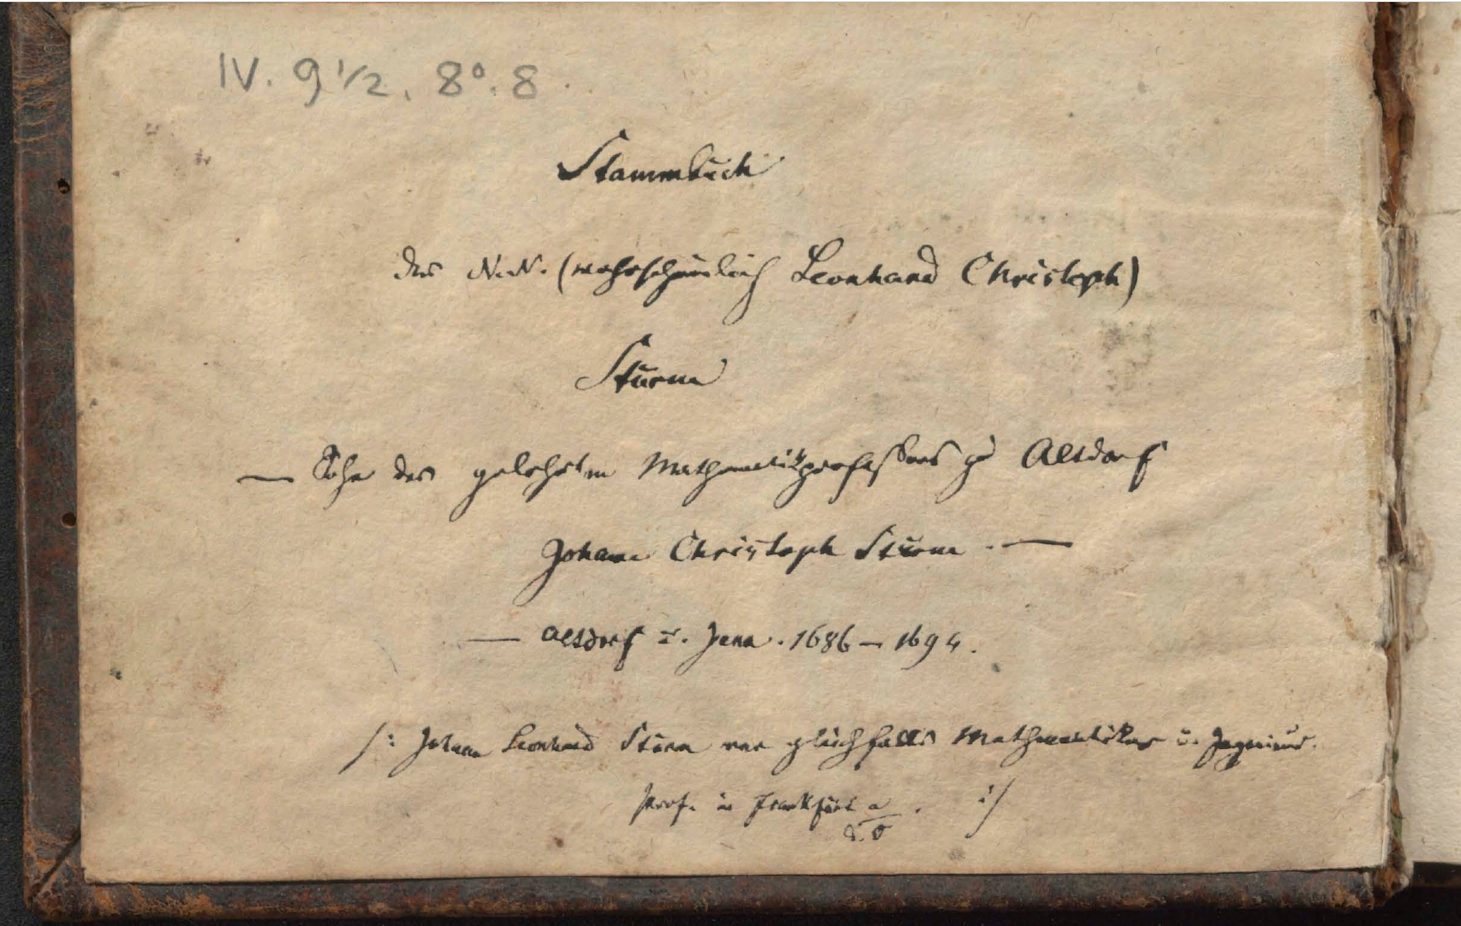 IV. 9 1/2. 8°. 8.
Stammbuch
des N.N. (wahrscheinlich Leonhard Christoph)
Sturm
— Sohn des gelehrten Mathematikprofessors zu Altdorf
Johann Christoph Sturm. —
— Altdorf u. Jena. 1686 – 1694.
/: Johann Leonhard Sturm war gleichfalls Mathematiker u. Ingenieur.
Prof. in Frankfurt a
d. O. :/